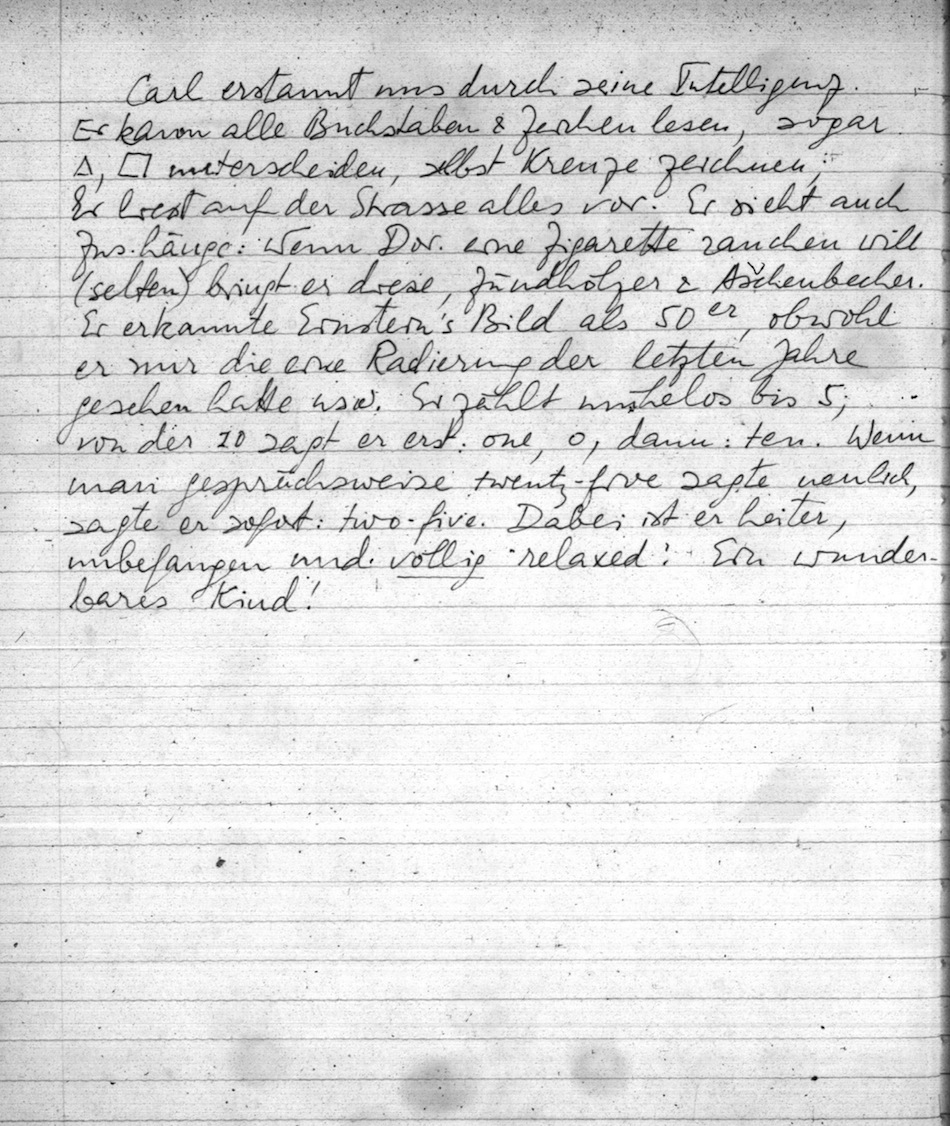 Carl erstaunt uns durch seine Intelligenz.
Er kann alle Buchstaben & Zeichen lesen, sogar
△, □ unterscheiden, selbst Kreuze zeichnen;
Er liest auf der Strasse alles vor. Er sieht auch
Zus.hänge: Wenn Dor. eine Zigarette rauchen will
(selten) bringt er diese, Zündhölzer & Aschenbecher.
Er erkannte Einstein's Bild als 50er, obwohl
er nur die eine Radierung der letzten Jahre
gesehen hatte usw. Er zählt mühelos bis 5;
von der 10 sagt er erst: one, 0, dann: ten. Wenn
man gesprächsweise twenty-five sagte neulich,
sagte er sofort: two-five. Dabei ist er heiter,
unbefangen und völlig relaxed! Ein wunder-
bares Kind!